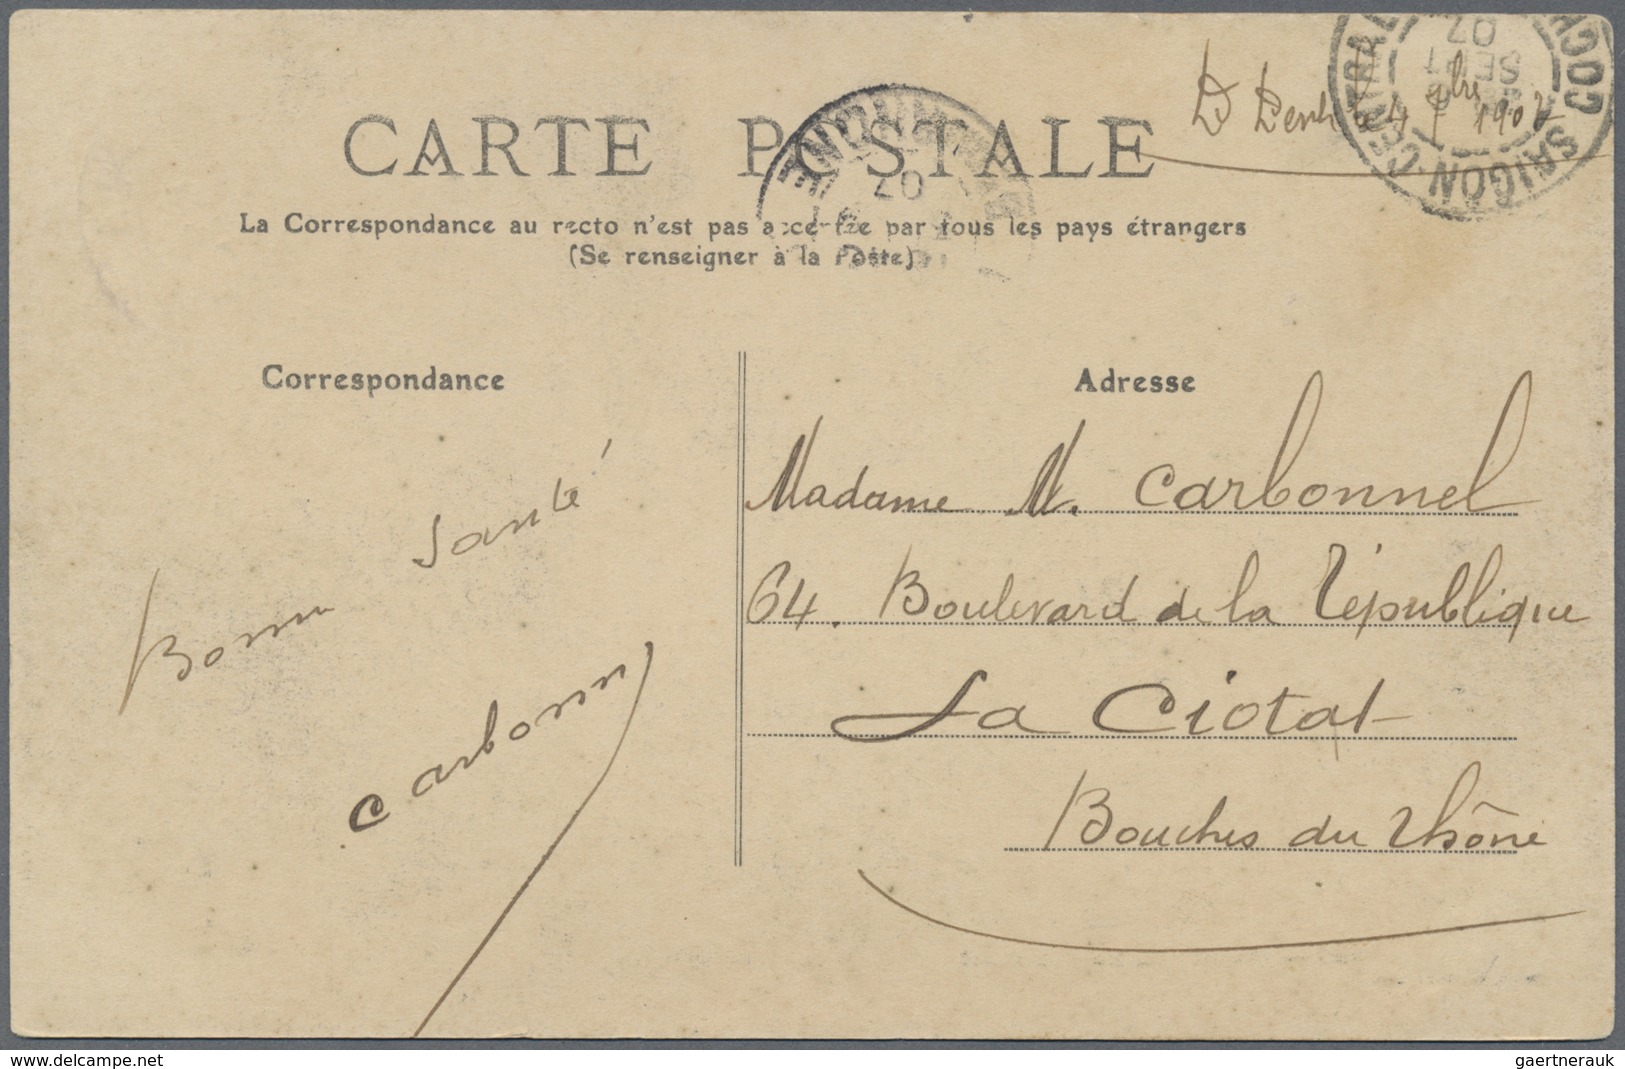 CARTE POSTALE
La Correspondance au recto n'est pas acceptée par tous les pays étrangers
(Se renseigner à la Poste)
4 7bre 1907
SAIGON-CENTRAL COCH
SEPT
07
07
Correspondance
Adresse
Bonne santé
Carbonnel
Madame M. Carbonnel
64. Boulevard de la République
La Ciotat
Bouches du Rhône
www.delcampe.net
gaertnerauk